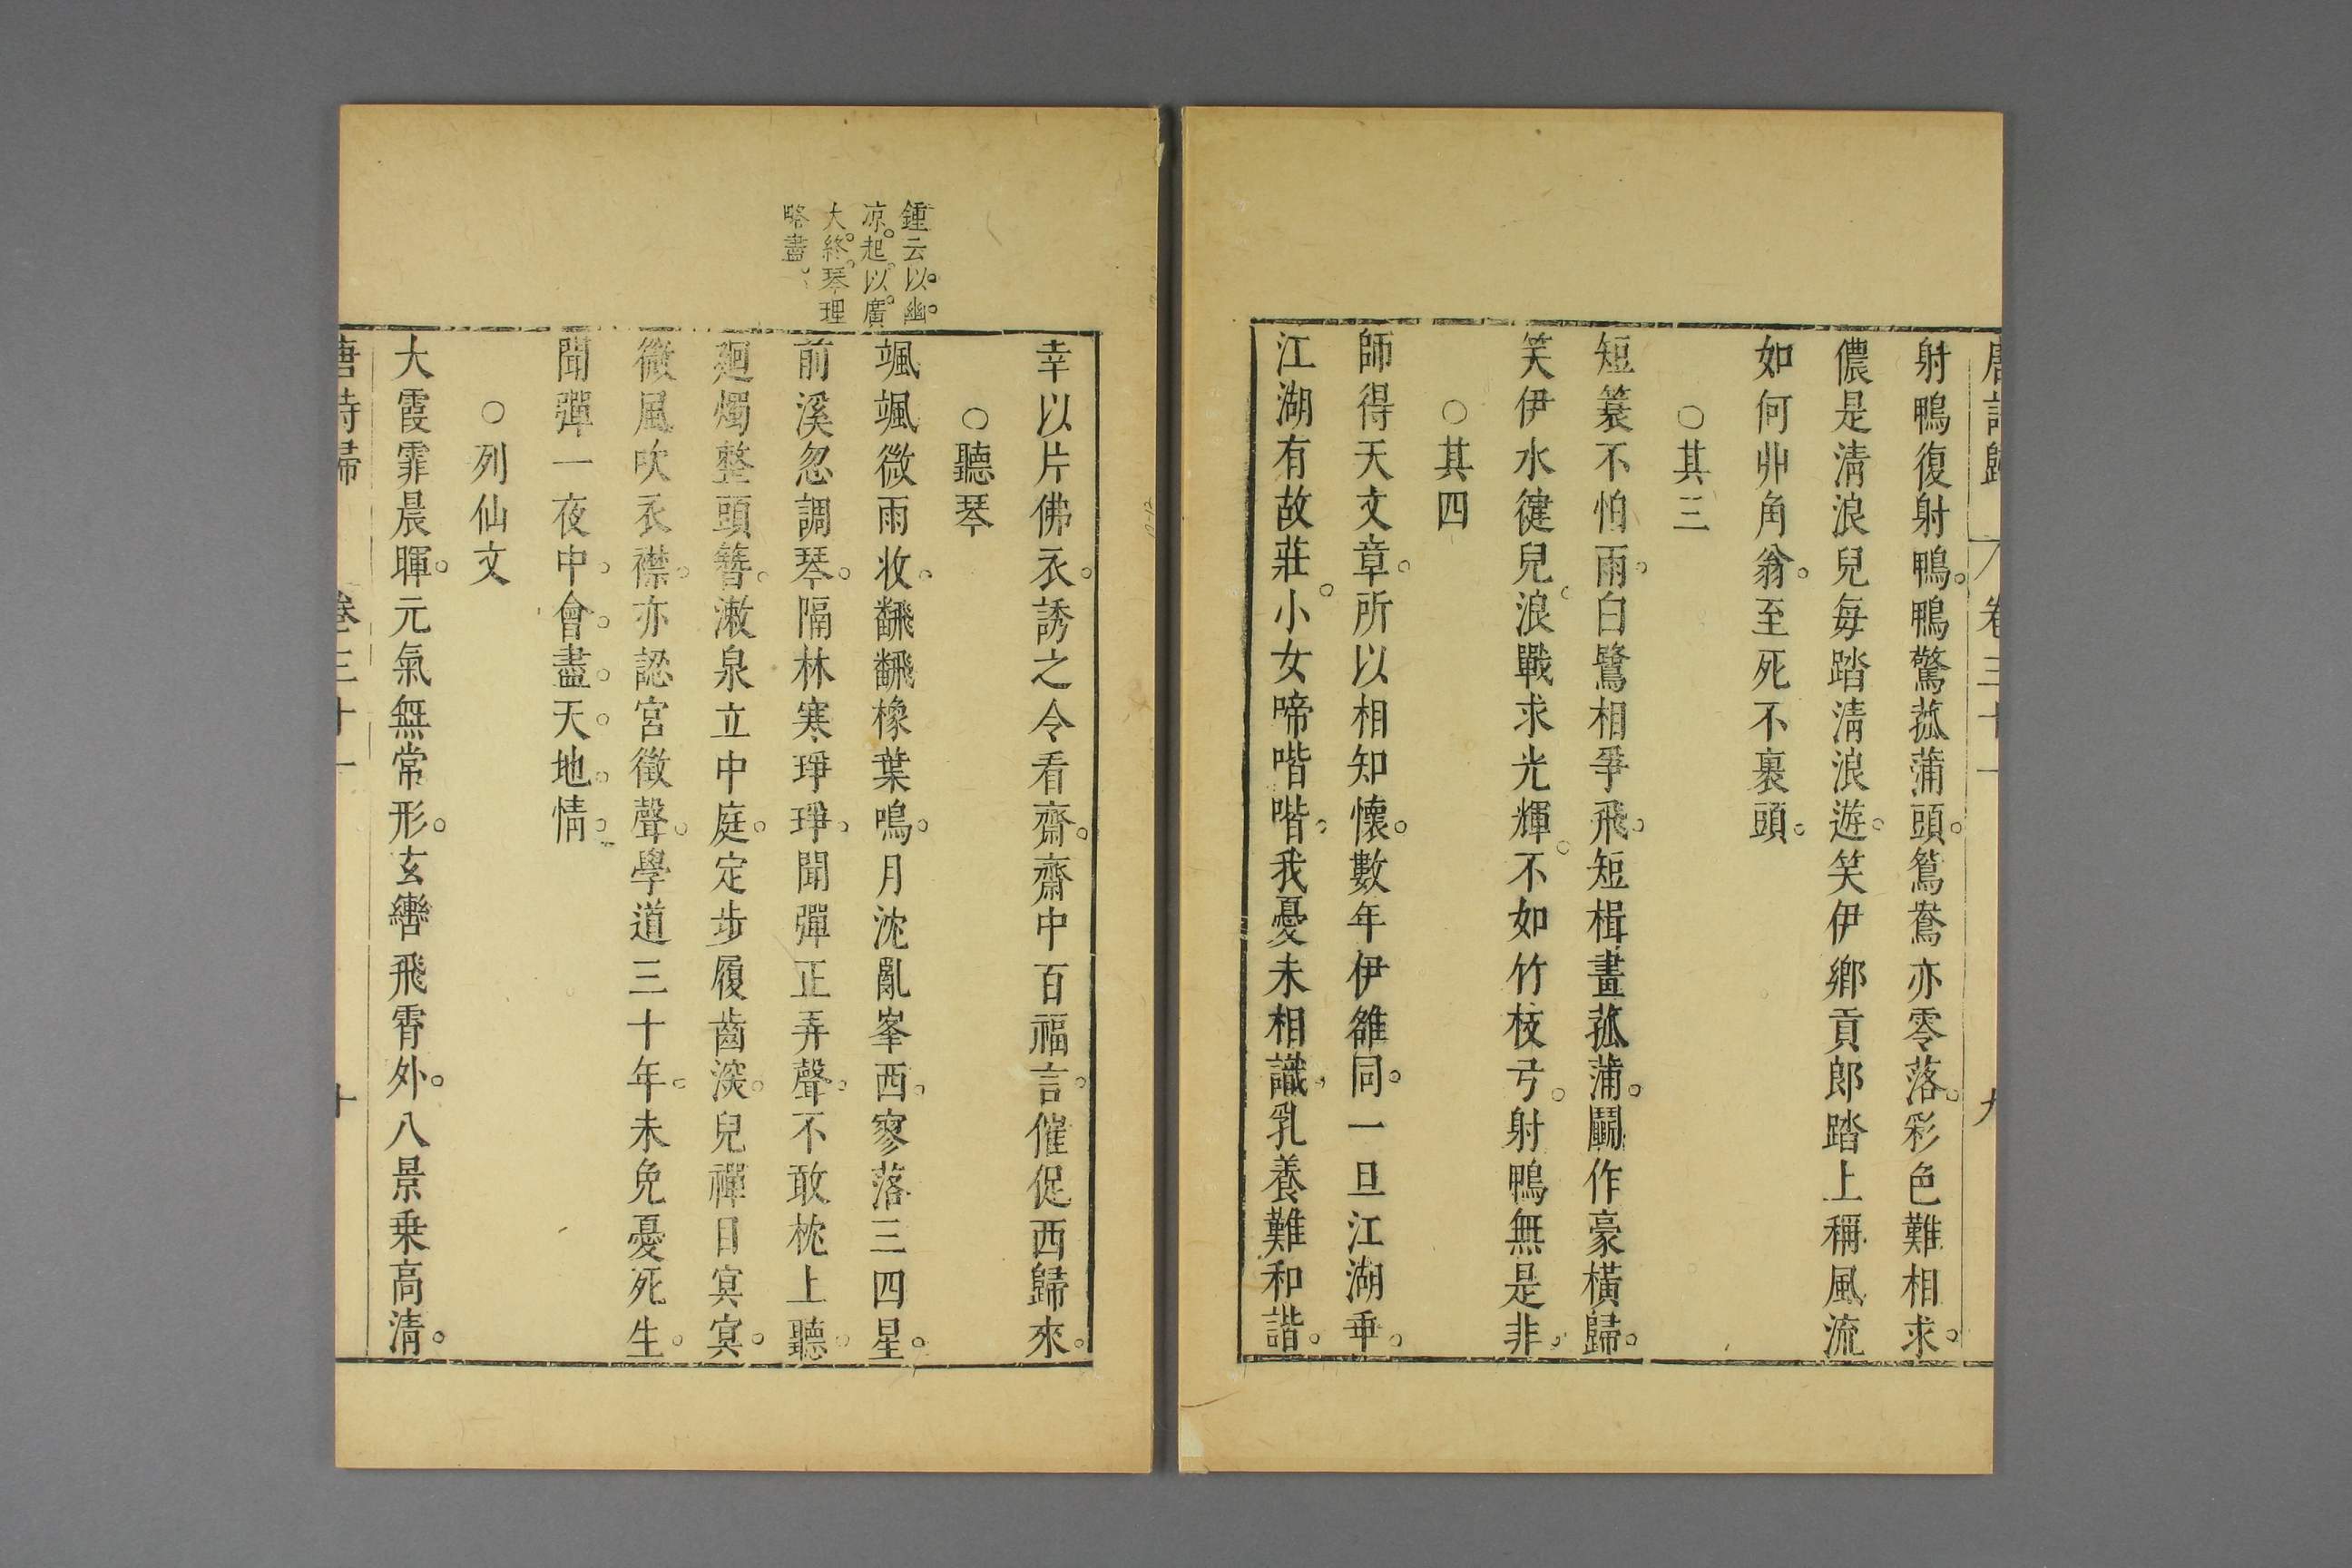 唐詩歸 卷三十一 九
射鴨復射鴨。鴨驚菰蒲頭。鴛鴦亦零落。彩色難相求。
儂是清浪兒每踏清浪遊。笑伊鄉貢郎踏上稱風流
如何丱角翁。至死不裹頭。
○其三
短簑不怕雨。白鷺相爭飛。短楫畫菰蒲。鬭作豪橫歸。
笑伊水健兒。浪戰求光輝。不如竹枝弓。射鴨無是非。
○其四
師得天文章。所以相知懷。數年伊雒同。一旦江湖乖。
江湖有故莊。小女啼喈喈。我憂未相識。乳養難和諧。
幸以片佛衣。誘之令看齋。齋中百福言。催促西歸來。
○聽琴
颯颯微雨收。翻翻橡葉鳴。月沈亂峯西。寥落三四星。
前溪忽調琴。隔林寒琤琤。聞彈正弄聲。不敢枕上聽。
廻燭整頭簪。漱泉立中庭。定步履齒深。兒禪目冥冥。
微風吹衣襟。亦認宮徵聲。學道三十年。未免憂死生。
聞彈一夜中。會。盡。天。地。情。
○列仙文
大霞霏晨暉。元氣無常形。玄轡飛霄外。八景乘高清。
唐詩歸 卷三十一 十
鍾云以。幽。
凉。起。以。廣
大。終。琴理
略盡。